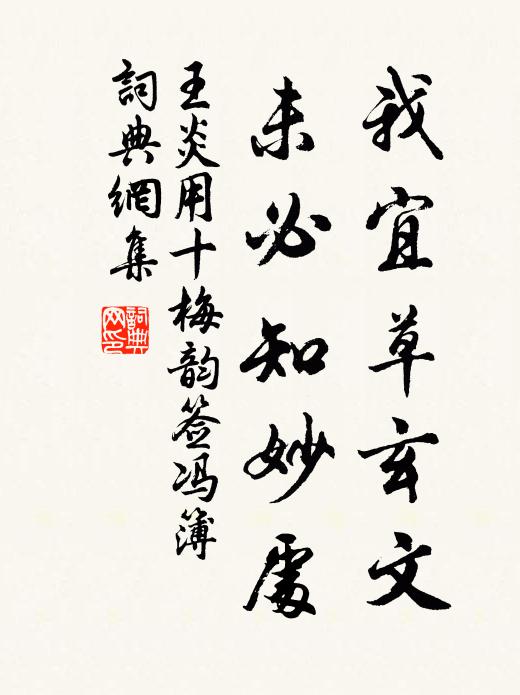 我宜草玄文
未必知妙處
王炎用十梅韵签冯簿
詞典網集
詞典網印